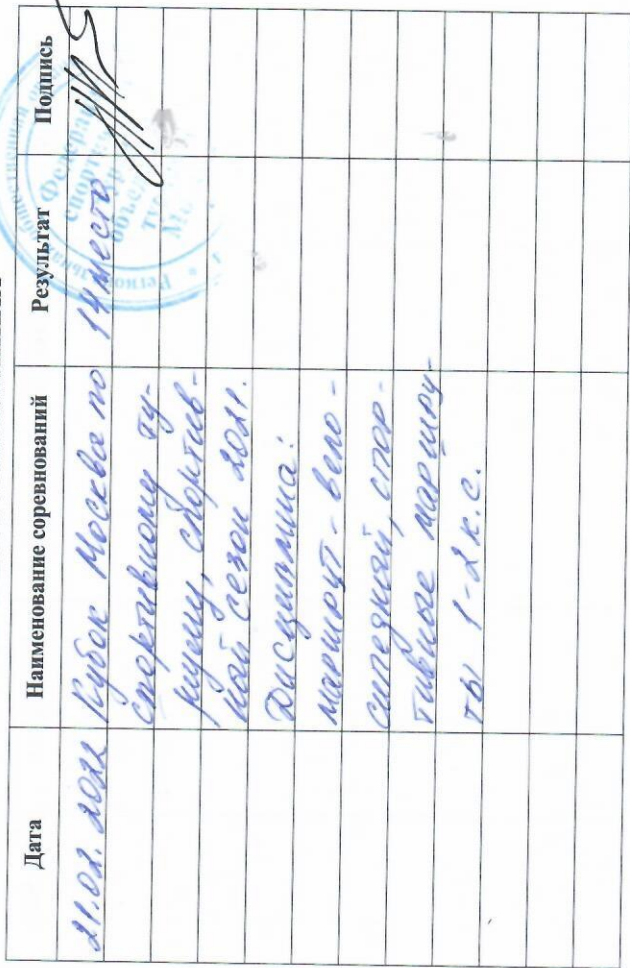 Дата Наименование соревнований Результат Подпись
21.02.2022 Кубок Москвы по 14 место
спортивному ту-
ризму, спортив-
ный сезон 2021.
Дисциплина:
маршрут - вело-
сипедный, спор-
тивные маршру-
ты 1-2 к.с.